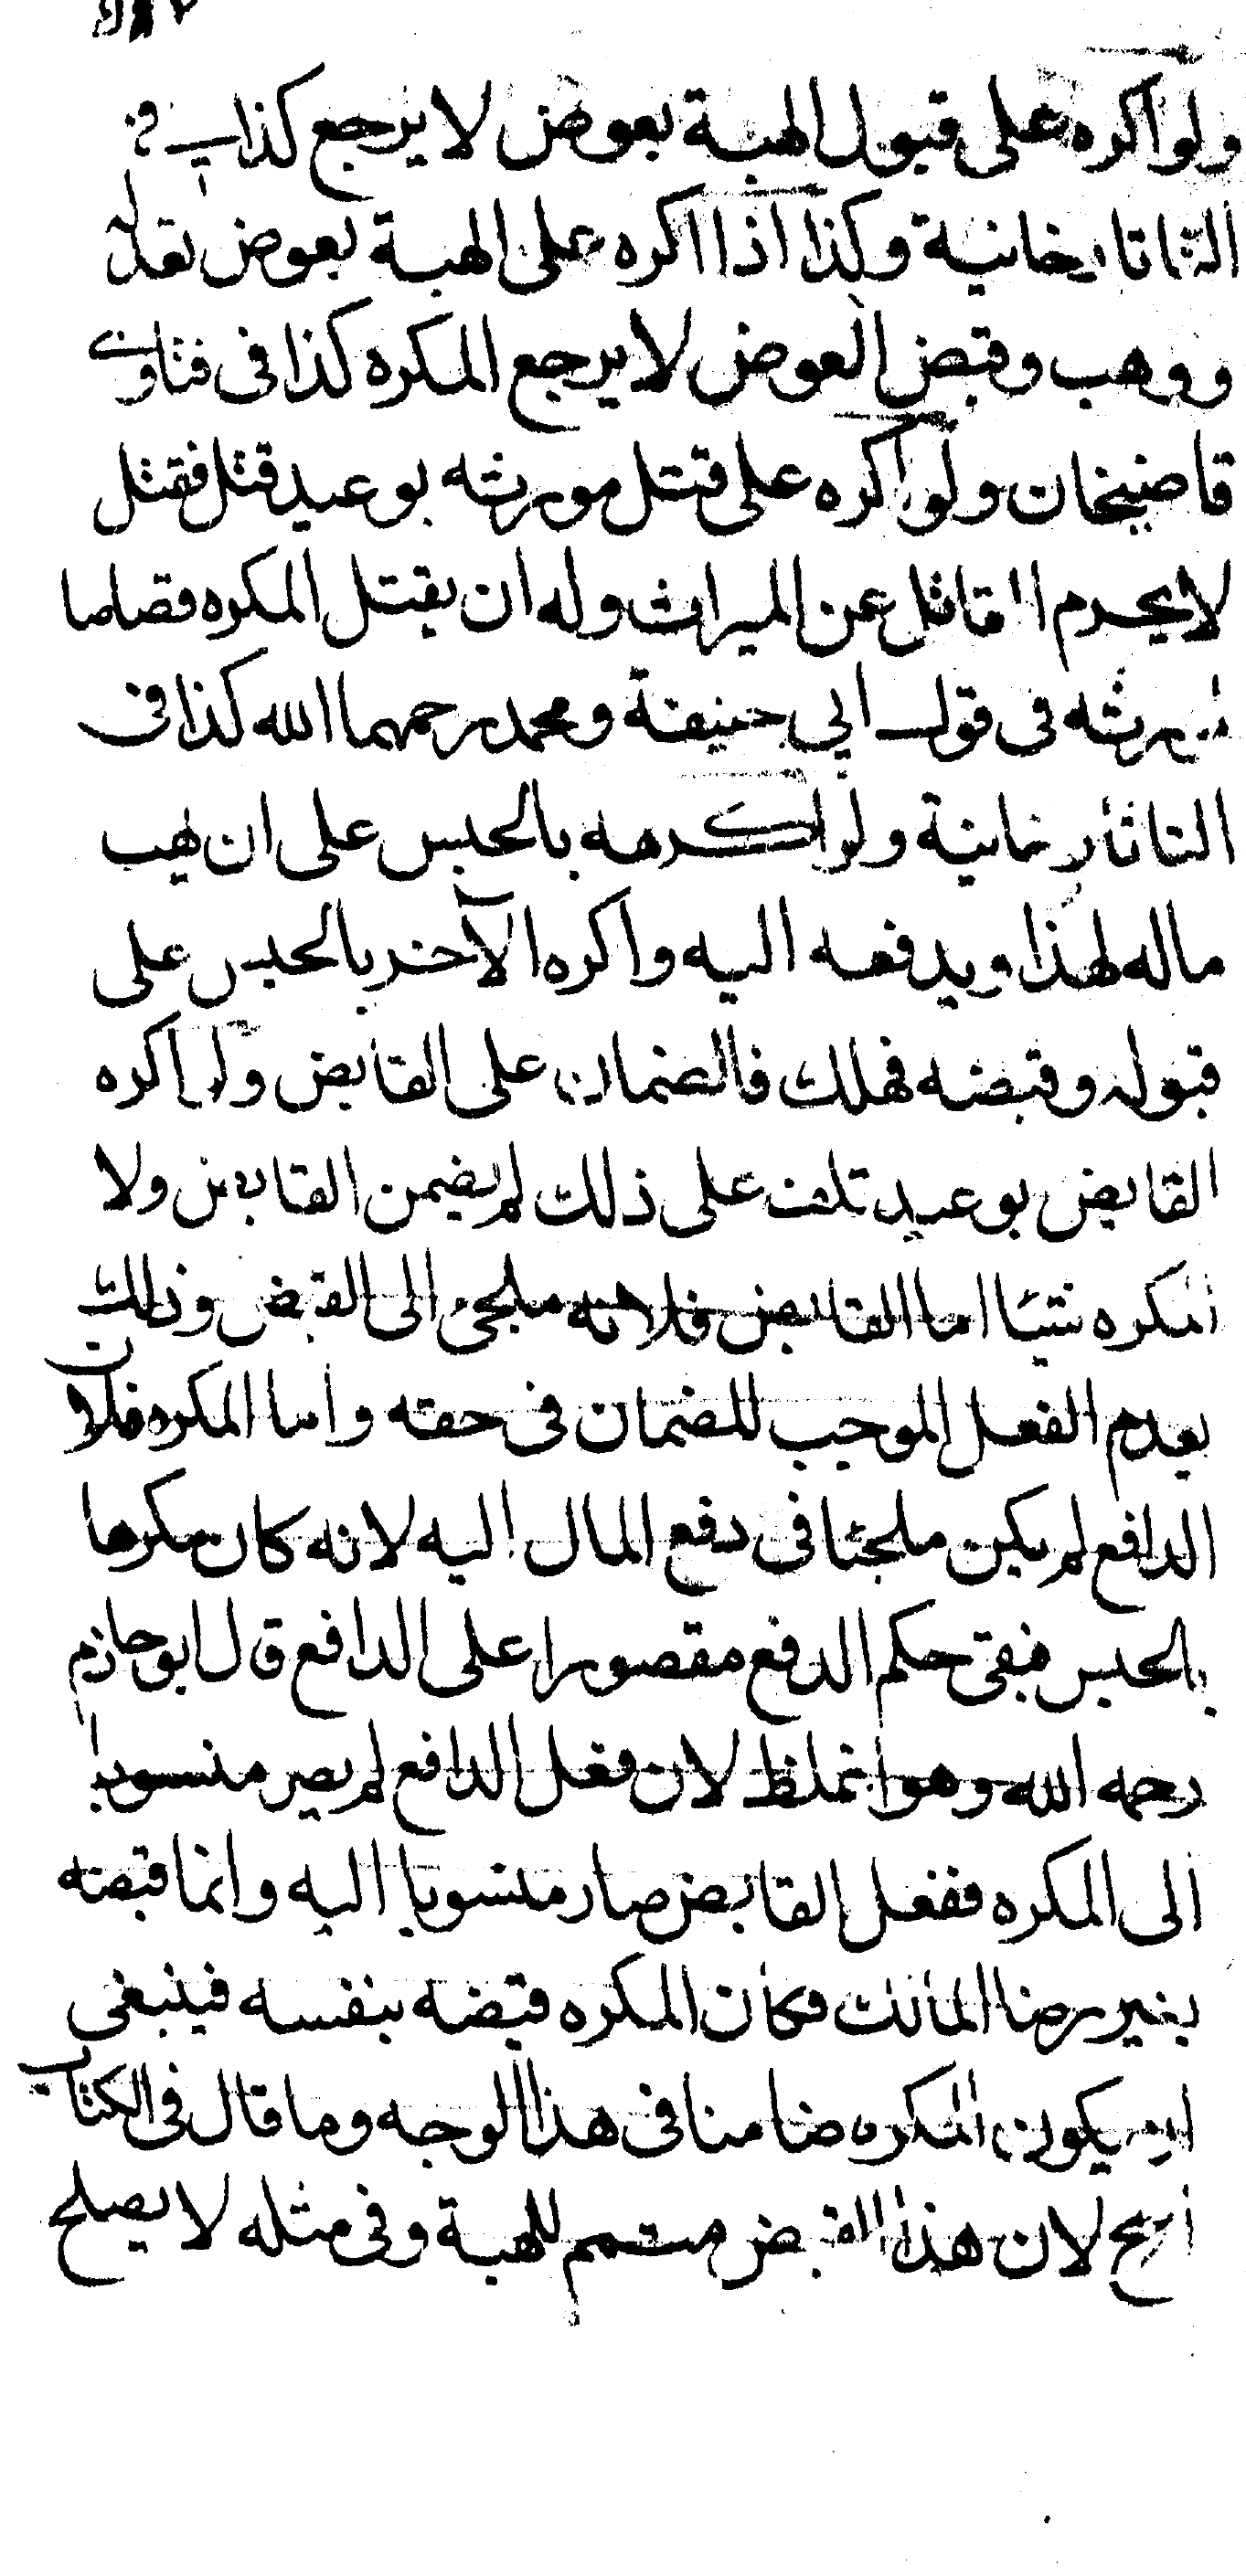 ولو اكره على قبول الهبة بعوض لا يرجع كذا في
التاتارخانية وكذا اذا اكره على الهبة بعوض بعدله
ووهب وقبض العوض لا يرجع المكره كذا فى فتاوى
قاضيخان ولو اكره على قتل مورثه بوعيد قتل فقتل
لا يحرم القاتل عن الميراث وله ان يقتل المكره قصاصا
لمورثه فى قول ابي حنيفة ومحمد رحمهما الله كذا فى
التاتارخانية ولو اكرهه بالحبس على ان يهب
ماله لهذا ويدفعه اليه واكره الآخر بالحبس على
قبوله وقبضه فهلك فالضمان على القابض ولو اكره
القابض بوعيد تلف على ذلك لم يضمن القابض ولا
المكره شيئا اما القابض فلانه ملجئ الى القبض وذلك
يعدم الفعل الموجب للضمان فى حقه واما المكره فلان
الدافع لم يكن ملجئا فى دفع المال اليه لانه كان مكرها
بالحبس فبقى حكم الدفع مقصورا على الدافع قال ابو حازم
رحمه الله وهو غلط لان فعل الدافع لم يصر منسوبا
الى المكره ففعل القابض صار منسوبا اليه وانما قبضه
بغير رضا المالك فكان المكره قبضه بنفسه فينبغى
ان يكون المكره ضامنا فى هذا الوجه وما قال فى الكتاب
اصح لان هذا القبض متمم للهبة وفى مثله لا يصلح